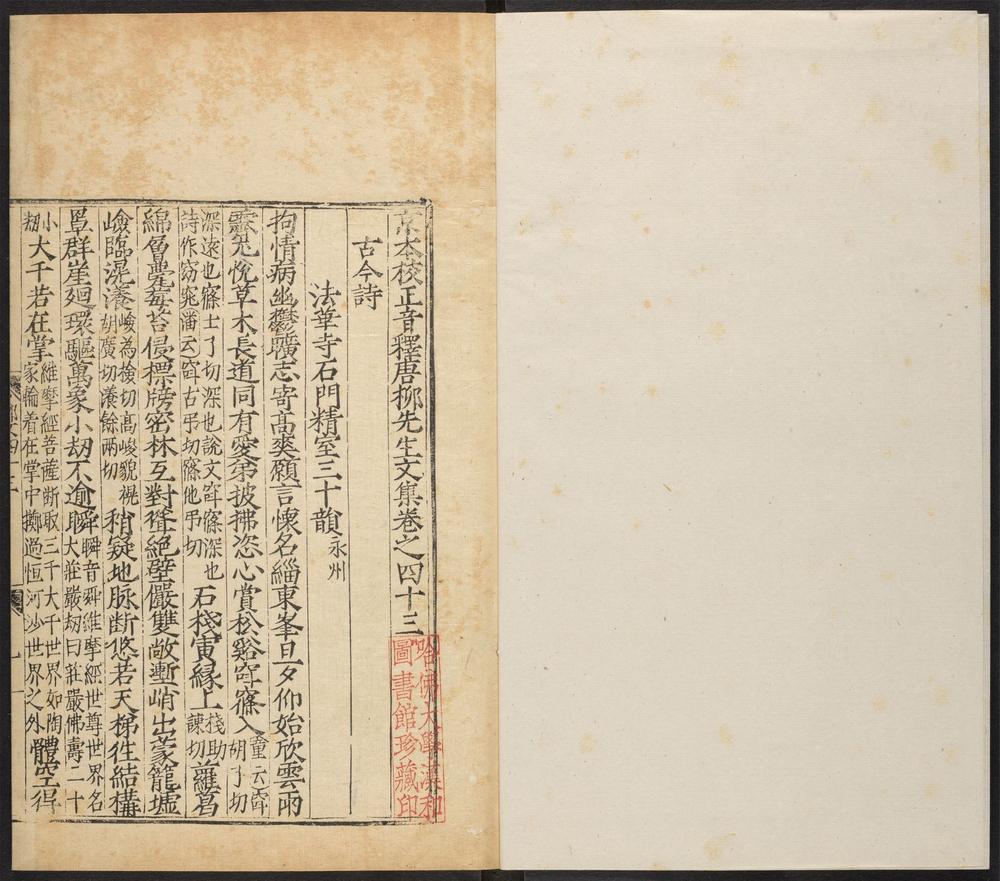 京本校正音釋唐柳先生文集卷之四十三
哈佛大學漢和
圖書館珍藏印
古今詩
法華寺石門精室三十韻永州
拘情病幽鬱曠志寄高爽願言懷名緇東峯旦夕仰始欣雲雨
霽尤悅草木長道同有愛弟披拂恣心賞松谿窅窱入童云窅胡了切
深遠也窱士了切深也說文窅窱深也詩作窈窕潘云窅古弔切窱他弔切石棧寅緣上棧助諫切蘿葛
綿層甍莓苔侵標牓密林互對聳絕壁儼雙敞塹峭出蒙籠墟
嶮臨滉瀁嶮為檢切高峻貌榥胡廣切瀁餘兩切稍疑地脉斷悠若天梯往結構
罩群崖廻環驅萬象小劫不逾瞬瞬音舜維摩經世尊世界名大莊嚴劫曰莊嚴佛壽二十
小劫大千若在掌維摩經菩薩斷取三千大千世界如陶家輪着在掌中擲過恒河沙世界之外體空得